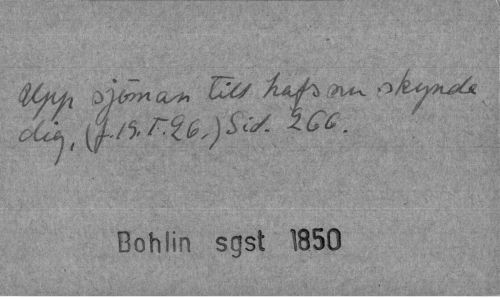 Upp sjöman till hafs nu skynda
dig, (f. 19. T. 26.) Sid. 266.
Bohlin sgst 1850